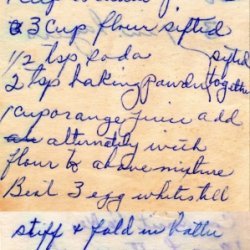 3 cup flour sifted
1/2 tsp soda sifted
2 tsp baking powder together
1 cup orange juice add
alternately with
flour to above mixture
Beat 3 egg whites till
stiff & fold in batter